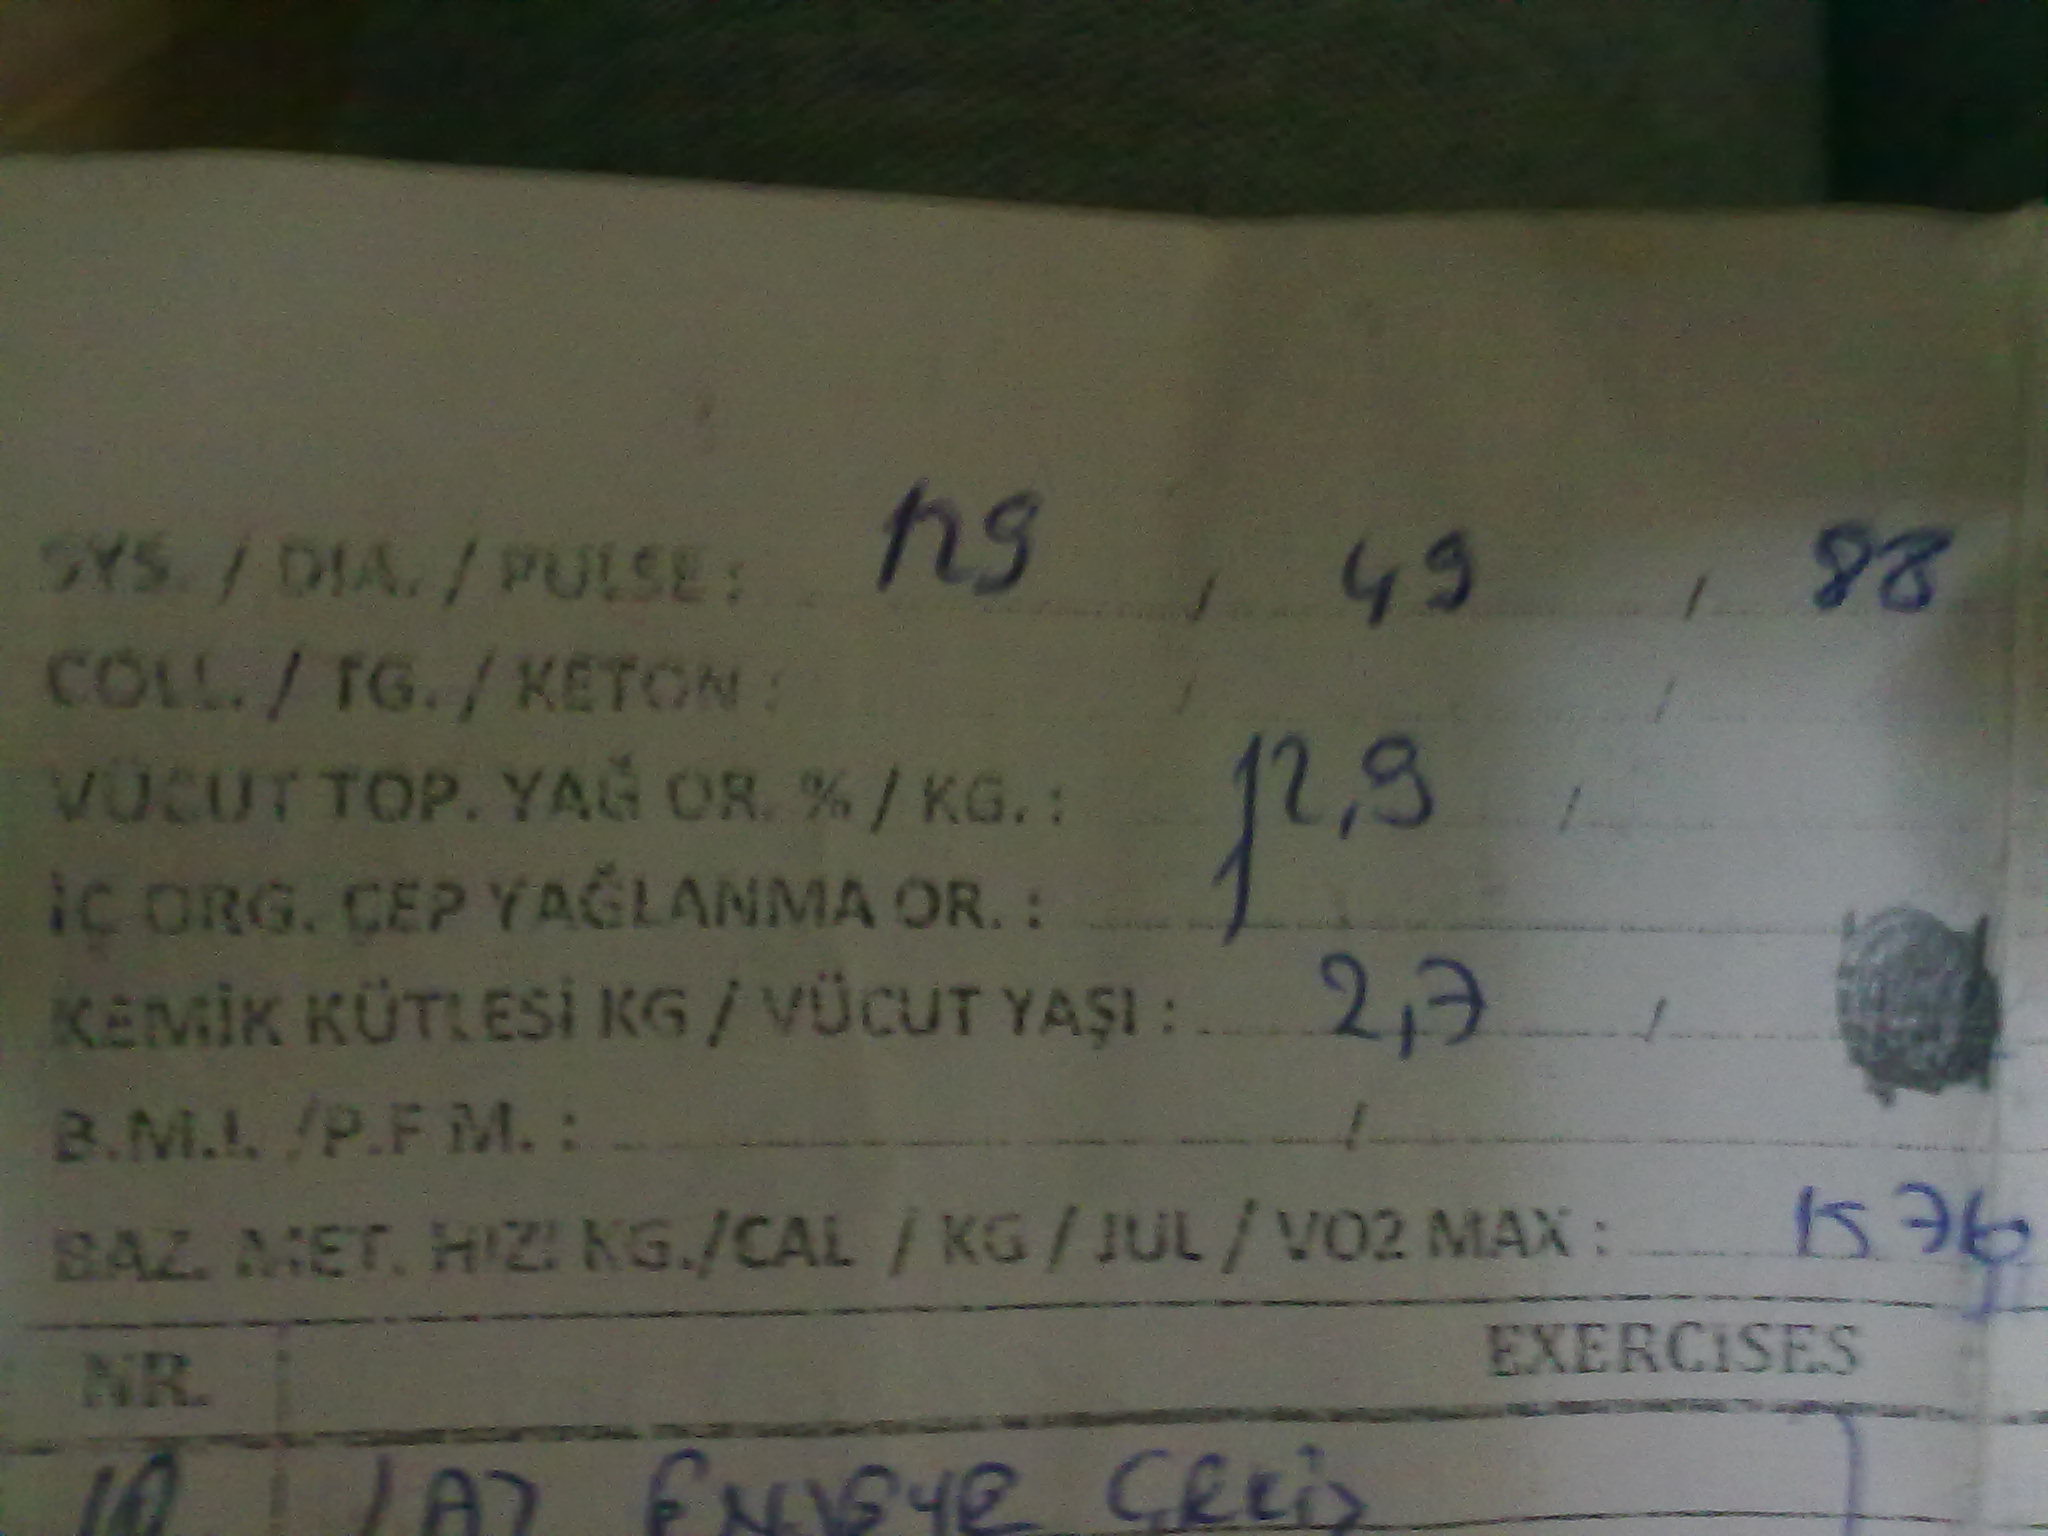 SYS. / DIA. / PULSE : 129 / 49 / 88
COLL. / TG. / KETON : / /
VÜCUT TOP. YAĞ OR. % / KG. : 12,9 /
İÇ ORG. ÇEP YAĞLANMA OR. : 1
KEMİK KÜTLESİ KG / VÜCUT YAŞI : 2,7 /
B.M.I. /P.F M. : /
BAZ. MET. HIZI KG./CAL / KG / JUL / VO2 MAX : 1576
NR. EXERCISES
LAT ENSEYE ÇEKİŞ